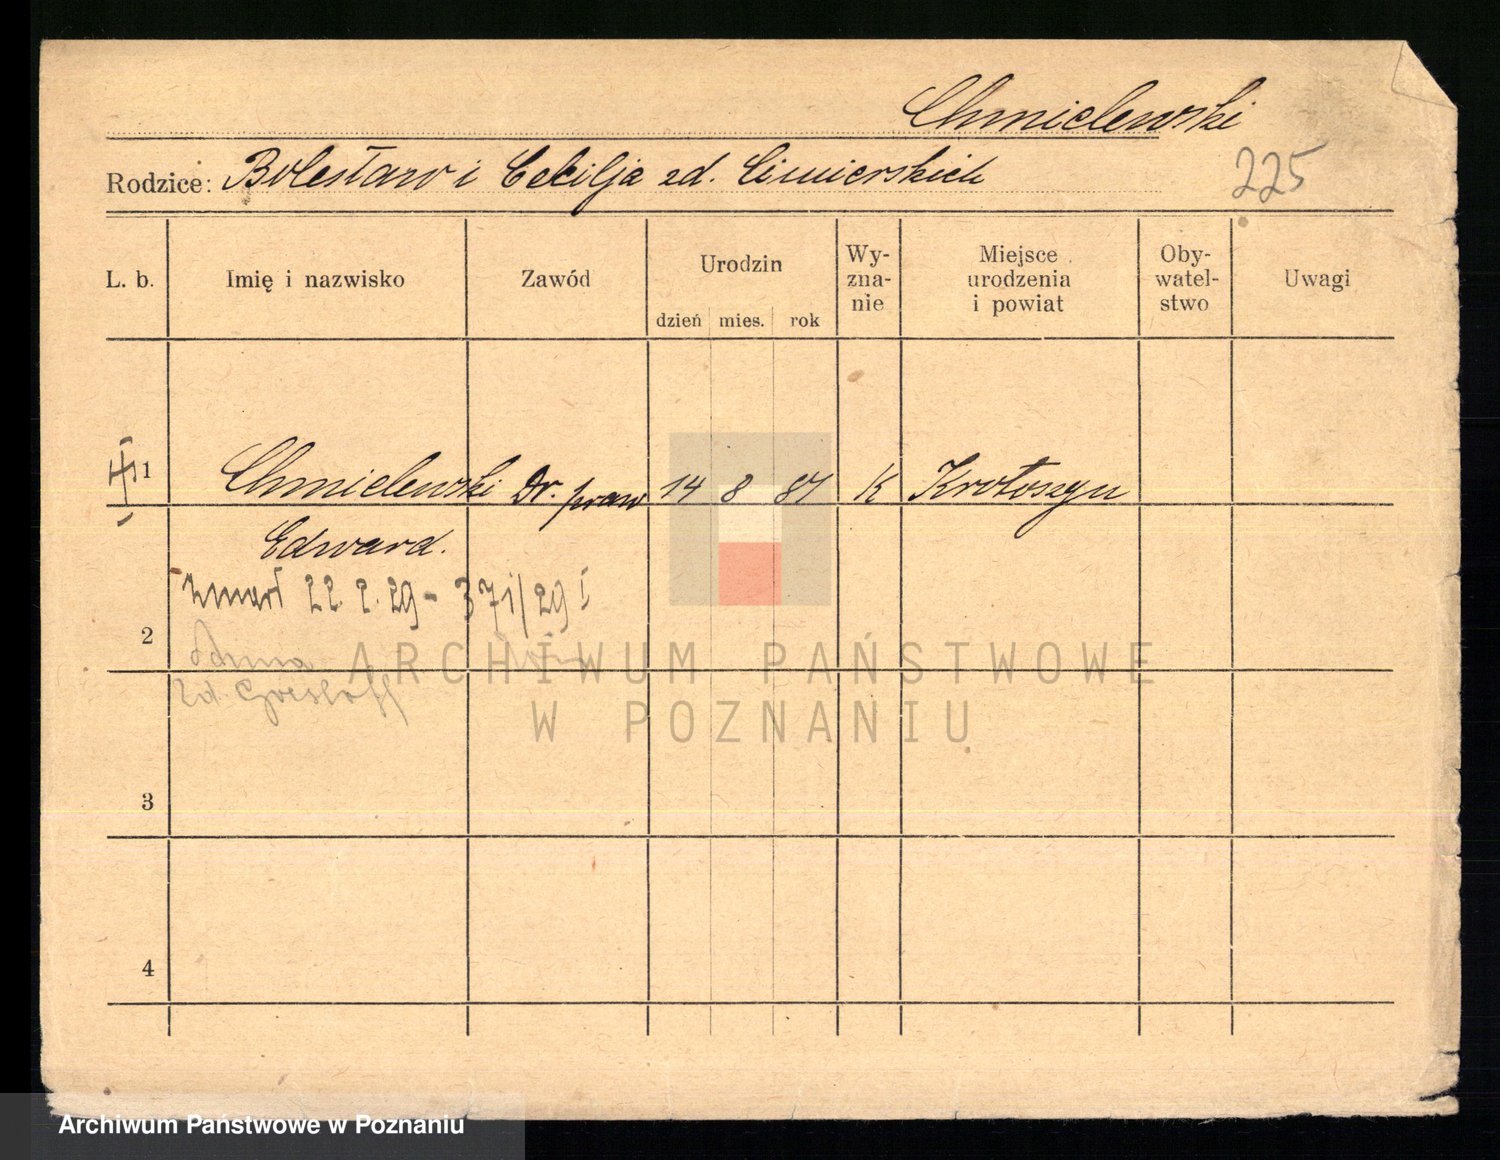 Chmielewski
Rodzice: Bolesław i Cecilja zd. Cimierskich
225
L. b. Imię i nazwisko Zawód Urodzin dzień mies. rok Wy-zna-nie Miejsce urodzenia i powiat Oby-watel-stwo Uwagi
1 Chmielewski Dr. praw 14 8 87 K Krotoszyn
Edward.
zmarł 22. 2. 29 - 371/29 I
2
zd.
3
4
ARCHIWUM PAŃSTWOWE
W POZNANIU
Archiwum Państwowe w Poznaniu